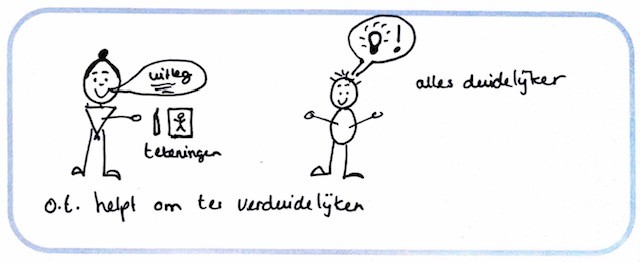 uitleg
!
alles duidelijker
tekeningen
o.t. helpt om te verduidelijken